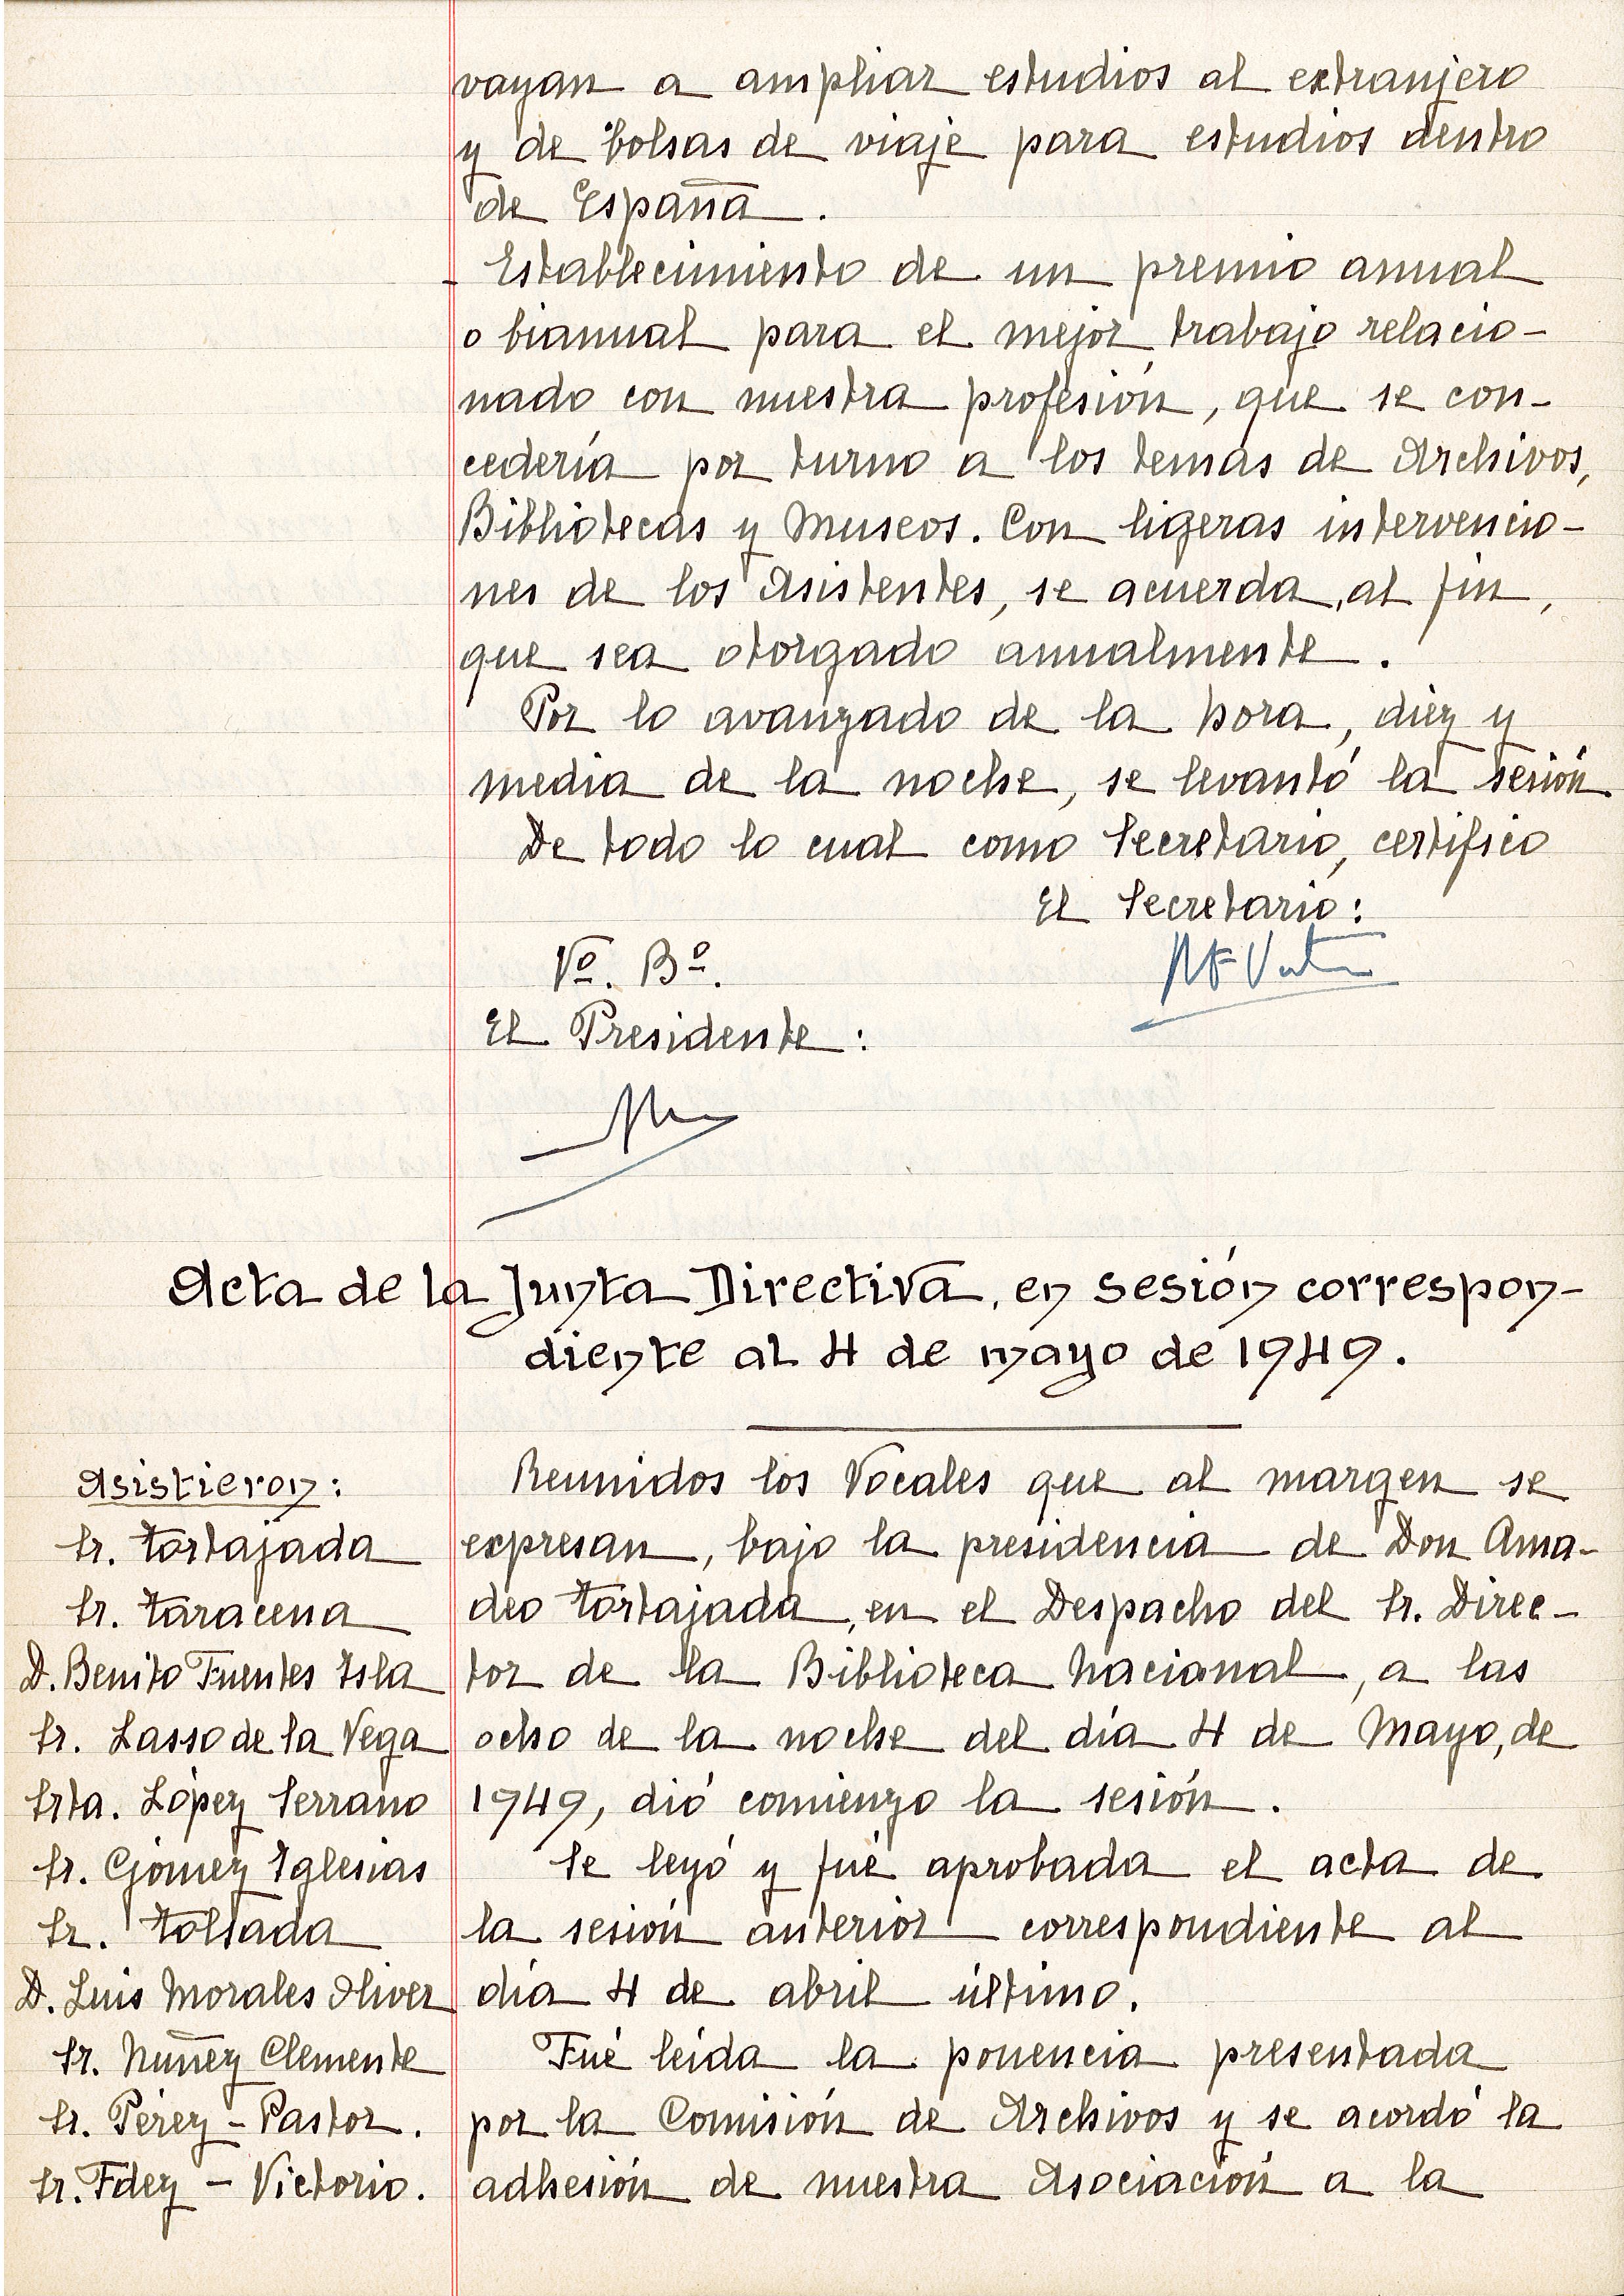 vayan a ampliar estudios al extranjero
y de bolsas de viaje para estudios dentro
de España.
- Establecimiento de un premio anual
o bianual para el mejor trabajo relacio-
nado con nuestra profesión, que se con-
cedería por turno a los temas de Archivos,
Bibliotecas y Museos. Con ligeras intervencio-
nes de los Asistentes, se acuerda, al fin,
que sea otorgado anualmente.
Por lo avanzado de la hora, diez y
media de la noche, se levantó la sesión
De todo lo cual como Secretario, certifico
El Secretario:
Vº. Bº.
El Presidente:
Acta de la Junta Directiva, en sesión correspon-
diente al 4 de mayo de 1949.
Asistieron:
Sr. Tortajada
Sr. Taracena
D. Benito Fuentes Isla
Sr. Lasso de la Vega
Srta. López Serrano
Sr. Gómez Iglesias
Sr. Tolsada
D. Luis Morales Oliver
Sr. Núñez Clemente
Sr. Pérez-Pastor.
Sr. Fdez - Victorio.
Reunidos los Vocales que al margen se
expresan, bajo la presidencia de Don Ama-
deo Tortajada, en el Despacho del Sr. Direc-
tor de la Biblioteca Nacional, a las
ocho de la noche del día 4 de Mayo, de
1949, dió comienzo la sesión.
Se leyó y fué aprobada el acta de
la sesión anterior correspondiente al
día 4 de abril último.
Fué leída la ponencia presentada
por la Comisión de Archivos y se acordó la
adhesión de nuestra Asociación a la